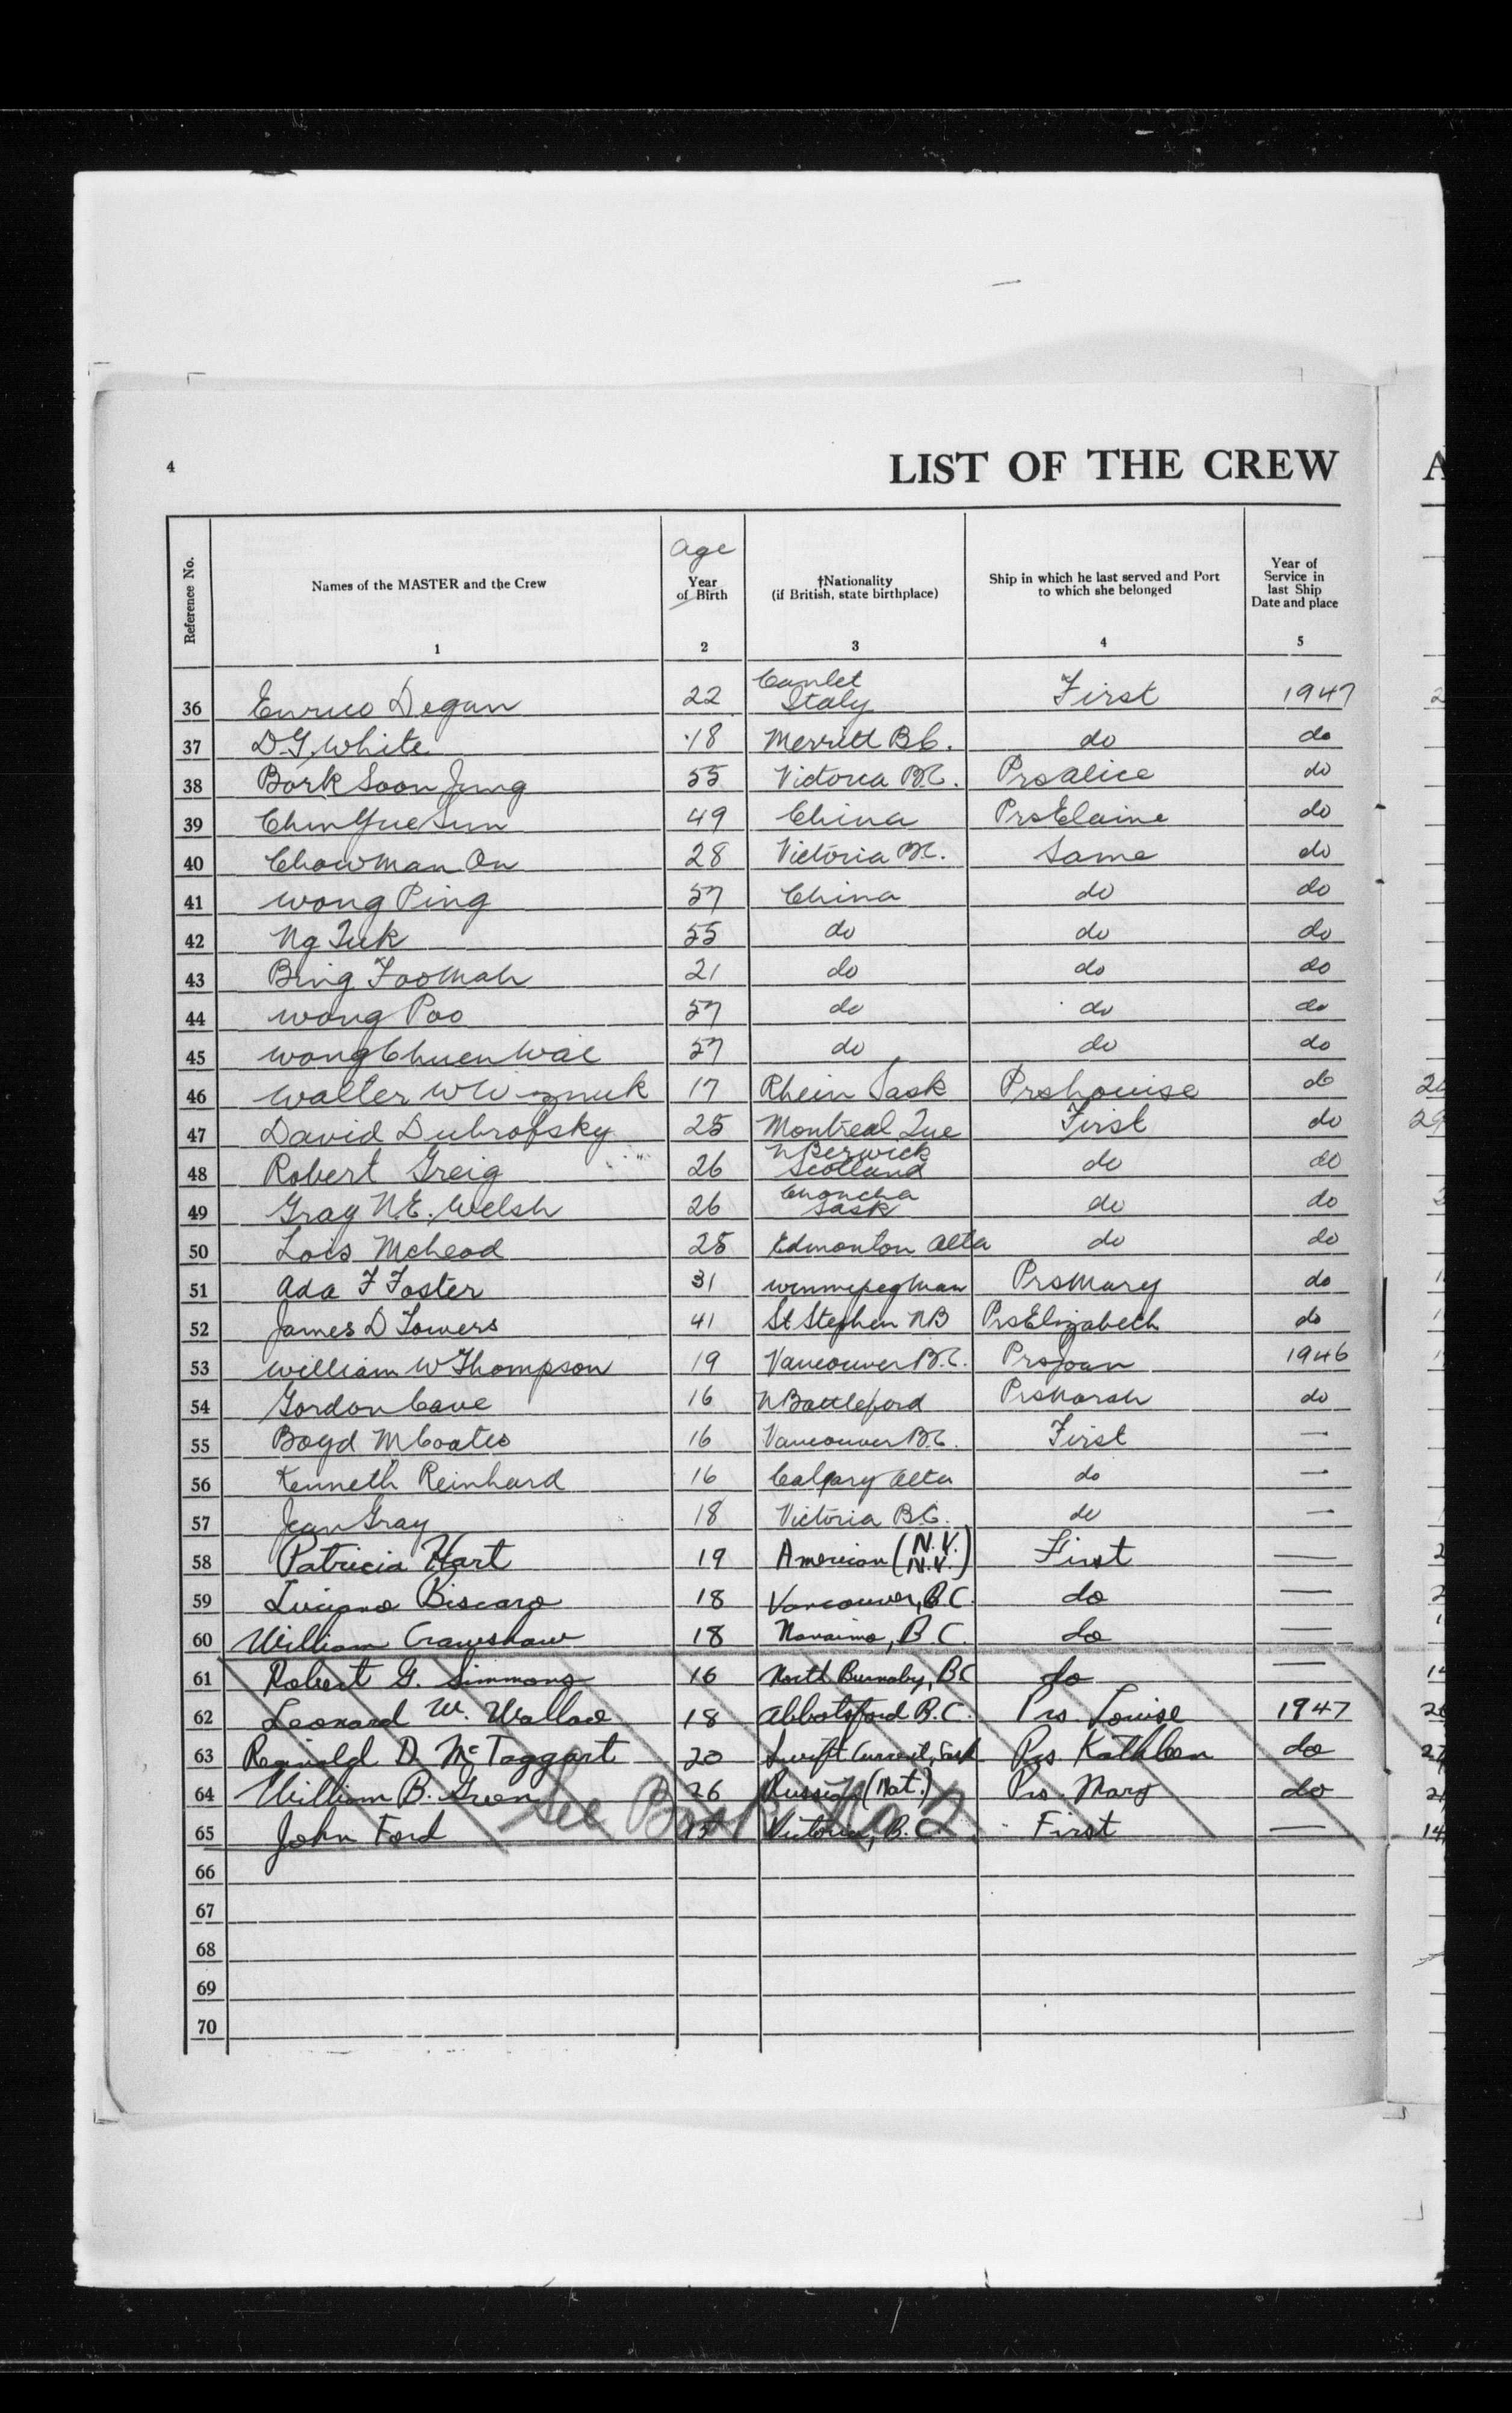 4
LIST OF THE CREW
A
Reference No.
Names of the MASTER and the Crew
1
age
Year
of Birth
2
†Nationality
(if British, state birthplace)
3
Ship in which he last served and Port
to which she belonged
4
Year of
Service in
last Ship
Date and place
5
36 Enrico Degan 22 Italy First 1947
37 D.G. White 18 Merritt B.C. do do
38 Bork Soon Jung 55 Victoria B.C. Prs Alice do
39 Chin Yue Sun 49 China Prs Elaine do
40 Chow Man On 28 Victoria B.C. Same do
41 Wong Ping 57 China do do
42 Ng Tuk 55 do do do
43 Bing Foo Mah 21 do do do
44 Wong Poo 57 do do do
45 Wong Chuen Wai 57 do do do
46 Walter W 17 Rhein Sask Prs Louise do
47 David Dubrofsky 25 Montreal Que First do
48 Robert Greig 26 N Berwick Scotland do do
49 Gray N.E. Welsh 26 Sask do do
50 Lois McLeod 25 Edmonton Alta do do
51 Ada F Foster 31 Winnipeg Man Prs Mary do
52 James D Towers 41 St Stephen NB Prs Elizabeth do
53 William W Thompson 19 Vancouver B.C. Prs Joan 1946
54 Gordon Cave 16 N Battleford Prs Norah do
55 Boyd M Coates 16 Vancouver B.C. First —
56 Kenneth Reinhard 16 Calgary Alta do —
57 Jean Gray 18 Victoria B.C. do —
58 Patricia Hart 19 American (N.V. N.V.) First —
59 Luciano Biscaro 18 Vancouver, B.C. do —
60 William Crawshaw 18 Nanaimo, B.C. do —
61 Robert G. Simmons 16 North Burnaby, BC do —
62 Leonard W. Wallace 18 Abbotsford B.C. Prs. Louise 1947
63 Reginald D. McTaggart 20 Swift Current, Sask Prs Kathleen do
64 William B. Green 26 Russia (Nat.) Prs. Mary do
See Book No 2
65 John Ford Victoria, B.C. First —
66
67
68
69
70